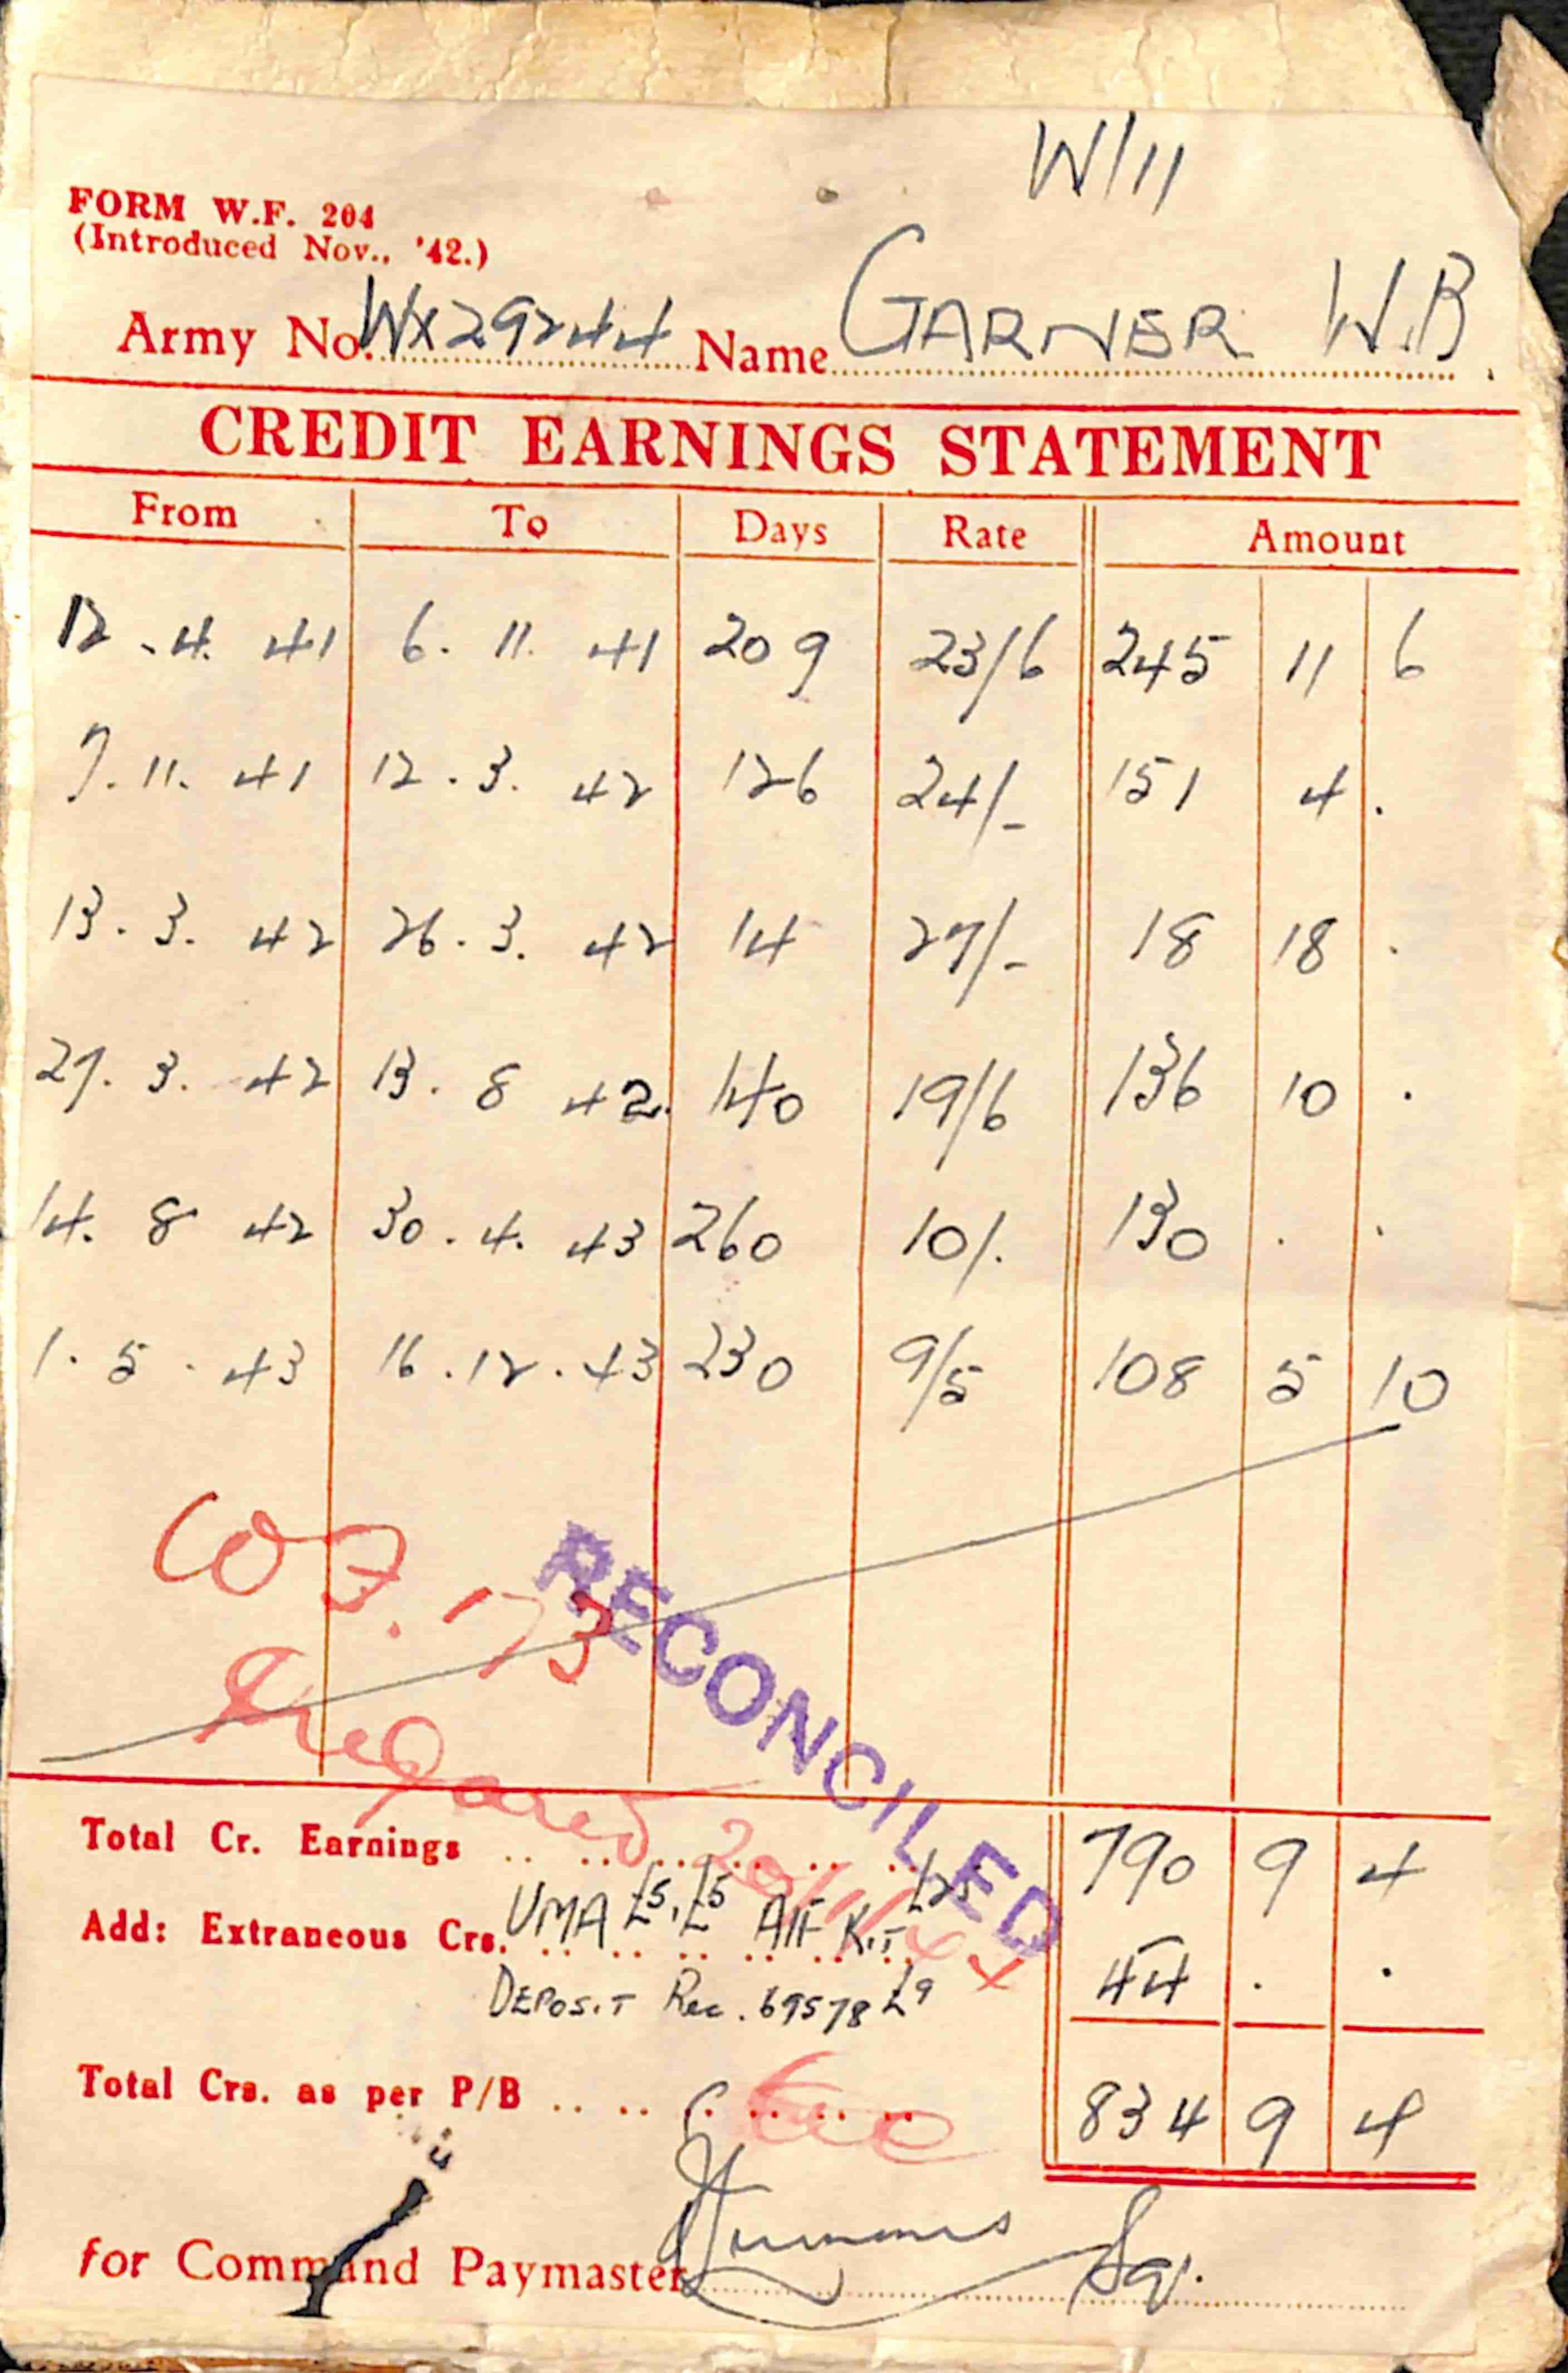 W/11
FORM W.F. 204
(Introduced Nov., '42.)
Army No. WX29244 Name GARNER W.B
CREDIT EARNINGS STATEMENT
From To Days Rate Amount
12.4.41 6.11.41 209 23/6 245 11 6
7.11.41 12.3.42 126 24/- 151 4 .
13.3.42 26.3.42 14 27/- 18 18 .
27.3.42 13.8.42 140 19/6 136 10 .
14.8.42 30.4.43 260 10/. 130 . .
1.5.43 16.12.43 230 9/5 108 5 10
173
RECONCILED
Total Cr. Earnings .. .. .. .. .. .. 790 9 4
Add: Extraneous Crs. UMA £5, £5 AIF KIT £25 44 . .
DEPOSIT Rec. 69578 £9
Total Crs. as per P/B .. .. .. .. .. .. 834 9 4
for Command Paymaster